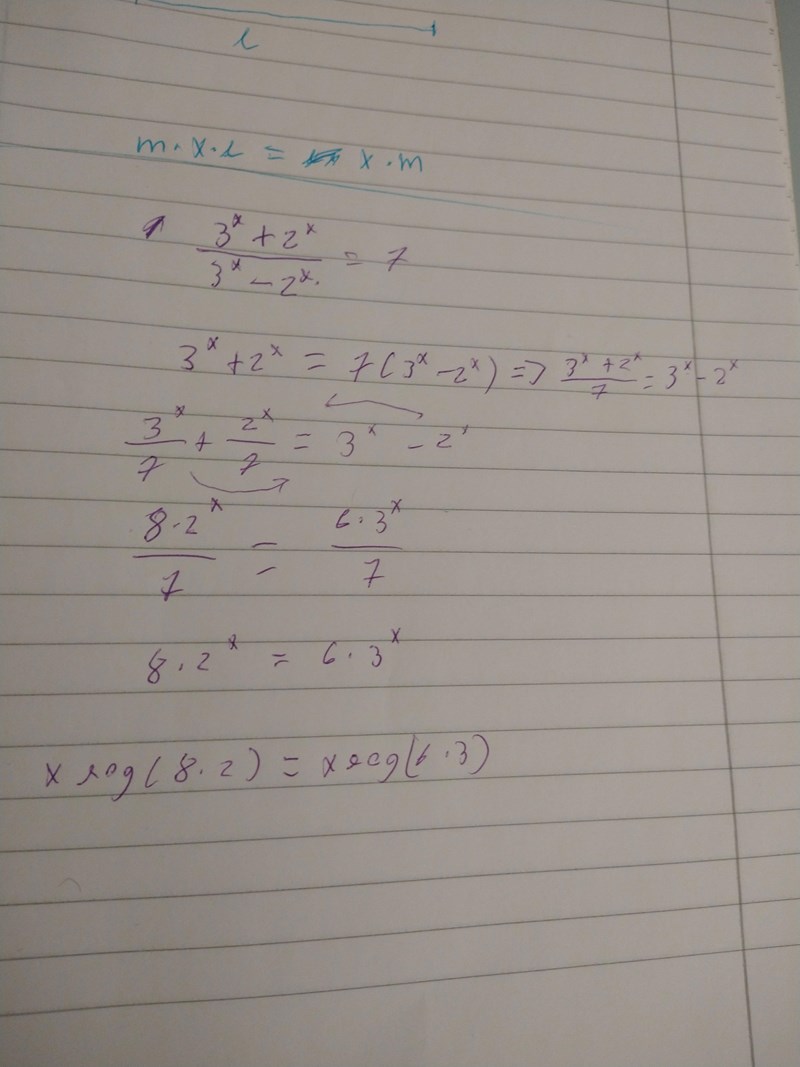 l
m·x·l = x·m
3^x + 2^x / 3^x - 2^x = 7
3^x + 2^x = 7(3^x - 2^x) => 3^x + 2^x / 7 = 3^x - 2^x
3^x / 7 + 2^x / 7 = 3^x - 2^x
8·2^x / 7 = 6·3^x / 7
8·2^x = 6·3^x
x log(8·2) = x log(6·3)